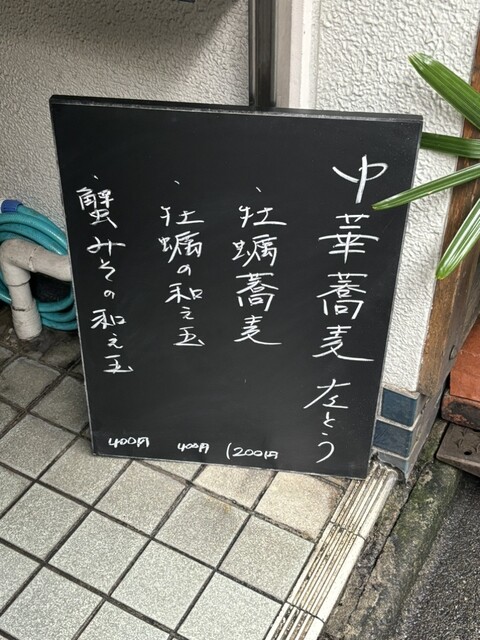 中華蕎麦 左とう
、牡蠣蕎麦 1200円
、牡蠣の和え玉 400円
、蟹みその和え玉 400円